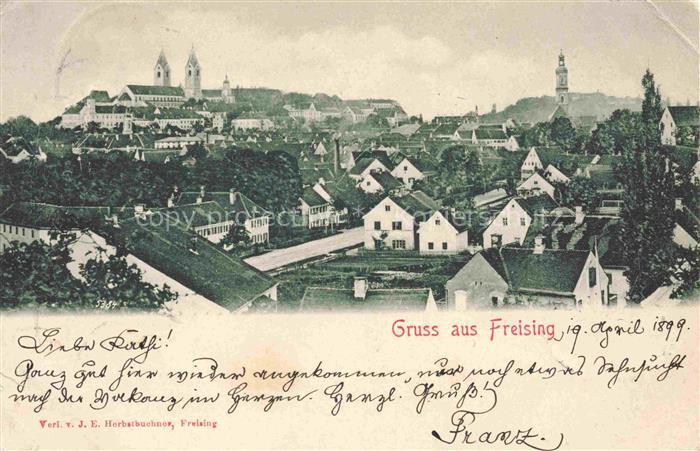 Gruss aus Freising, 19. April 1899.
Liebe Kathi!
Ganz gut hier wieder angekommen, nur noch etwas Sehnsucht
nach der Vakanz im Herzen. Herzl. Gruß!
Franz.
Verl. v. J. E. Herbstbuchner, Freising